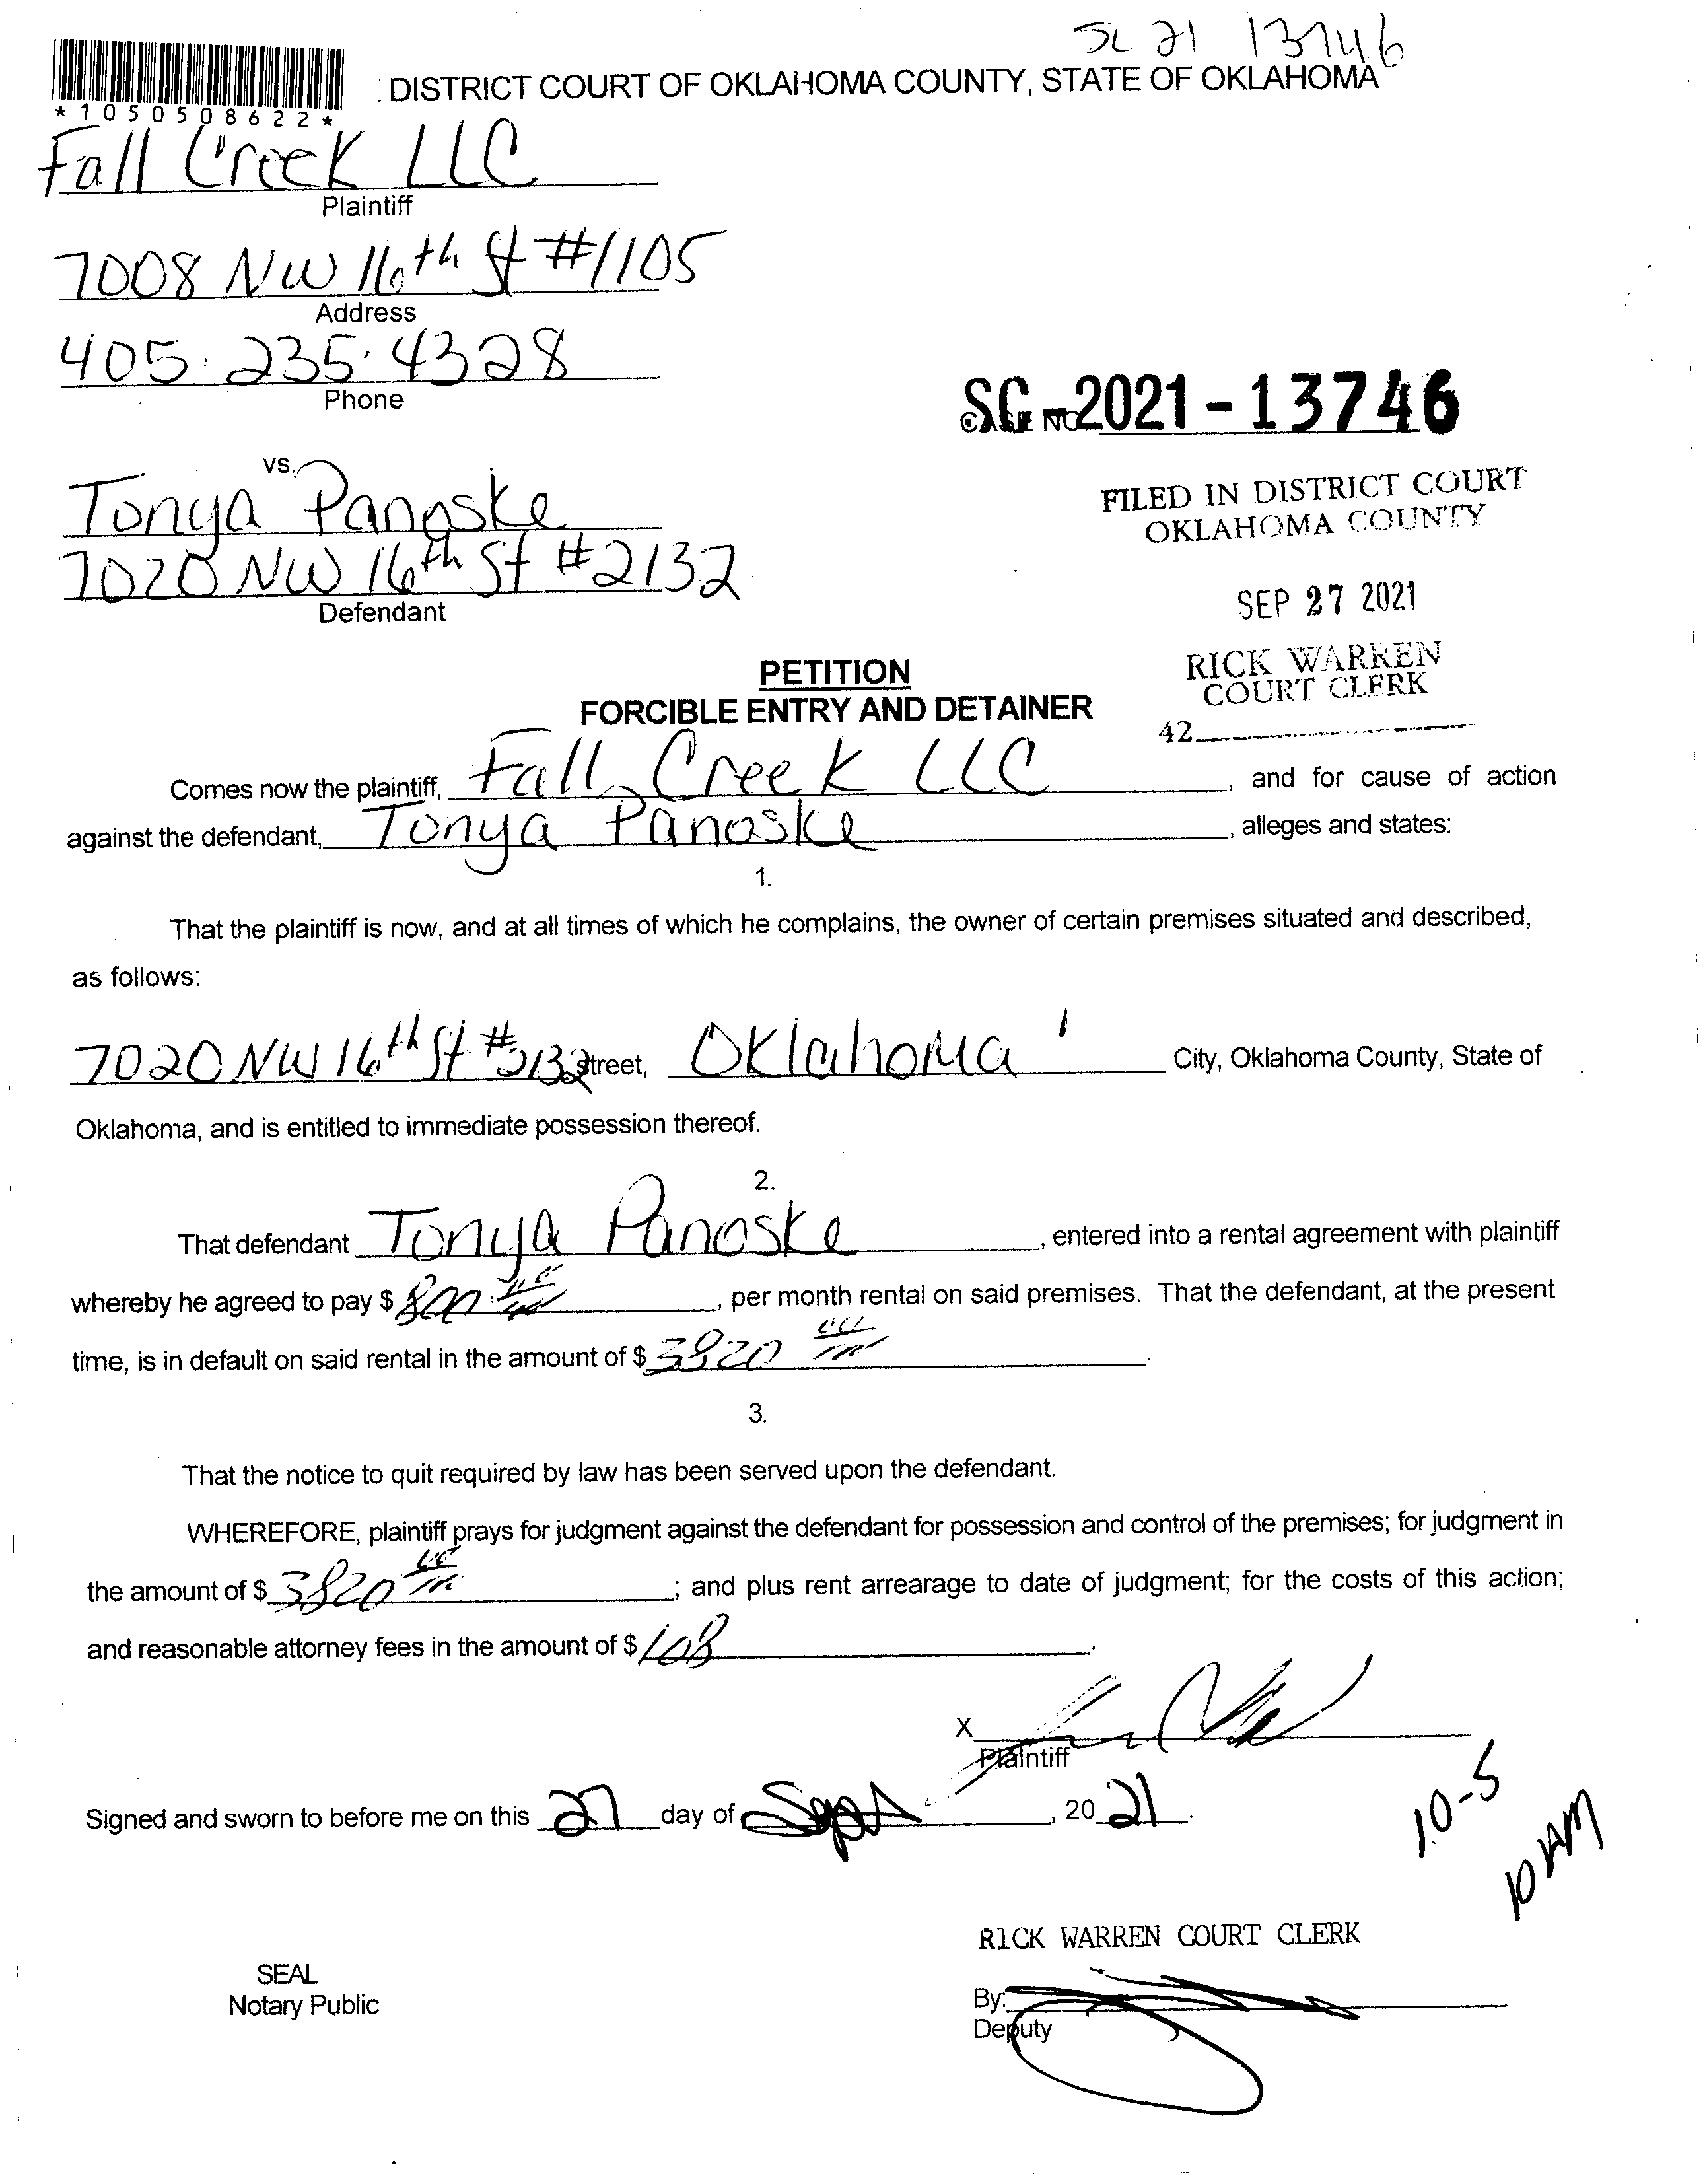 SC 21 13746
DISTRICT COURT OF OKLAHOMA COUNTY, STATE OF OKLAHOMA
*1050508622*
Fall Creek LLC
Plaintiff
7008 NW 16th St #1105
Address
405.235.4328
Phone
SC-2021-13746
CASE NO.
vs.
Tonya Panoske
7020 NW 16th St #2132
Defendant
FILED IN DISTRICT COURT
OKLAHOMA COUNTY
SEP 27 2021
RICK WARREN
COURT CLERK
42
PETITION
FORCIBLE ENTRY AND DETAINER
Comes now the plaintiff, Fall Creek LLC, and for cause of action
against the defendant, Tonya Panoske, alleges and states:
1.
That the plaintiff is now, and at all times of which he complains, the owner of certain premises situated and described,
as follows:
7020 NW 16th St #2132 Street, Oklahoma City, Oklahoma County, State of
Oklahoma, and is entitled to immediate possession thereof.
2.
That defendant Tonya Panoske, entered into a rental agreement with plaintiff
whereby he agreed to pay $ 800, per month rental on said premises. That the defendant, at the present
time, is in default on said rental in the amount of $ 3820.
3.
That the notice to quit required by law has been served upon the defendant.
WHEREFORE, plaintiff prays for judgment against the defendant for possession and control of the premises; for judgment in
the amount of $ 3820; and plus rent arrearage to date of judgment; for the costs of this action;
and reasonable attorney fees in the amount of $ 108.
X
Plaintiff
Signed and sworn to before me on this 27 day of Sept, 20 21.
10-5
10 AM
RICK WARREN COURT CLERK
SEAL
Notary Public
By:
Deputy